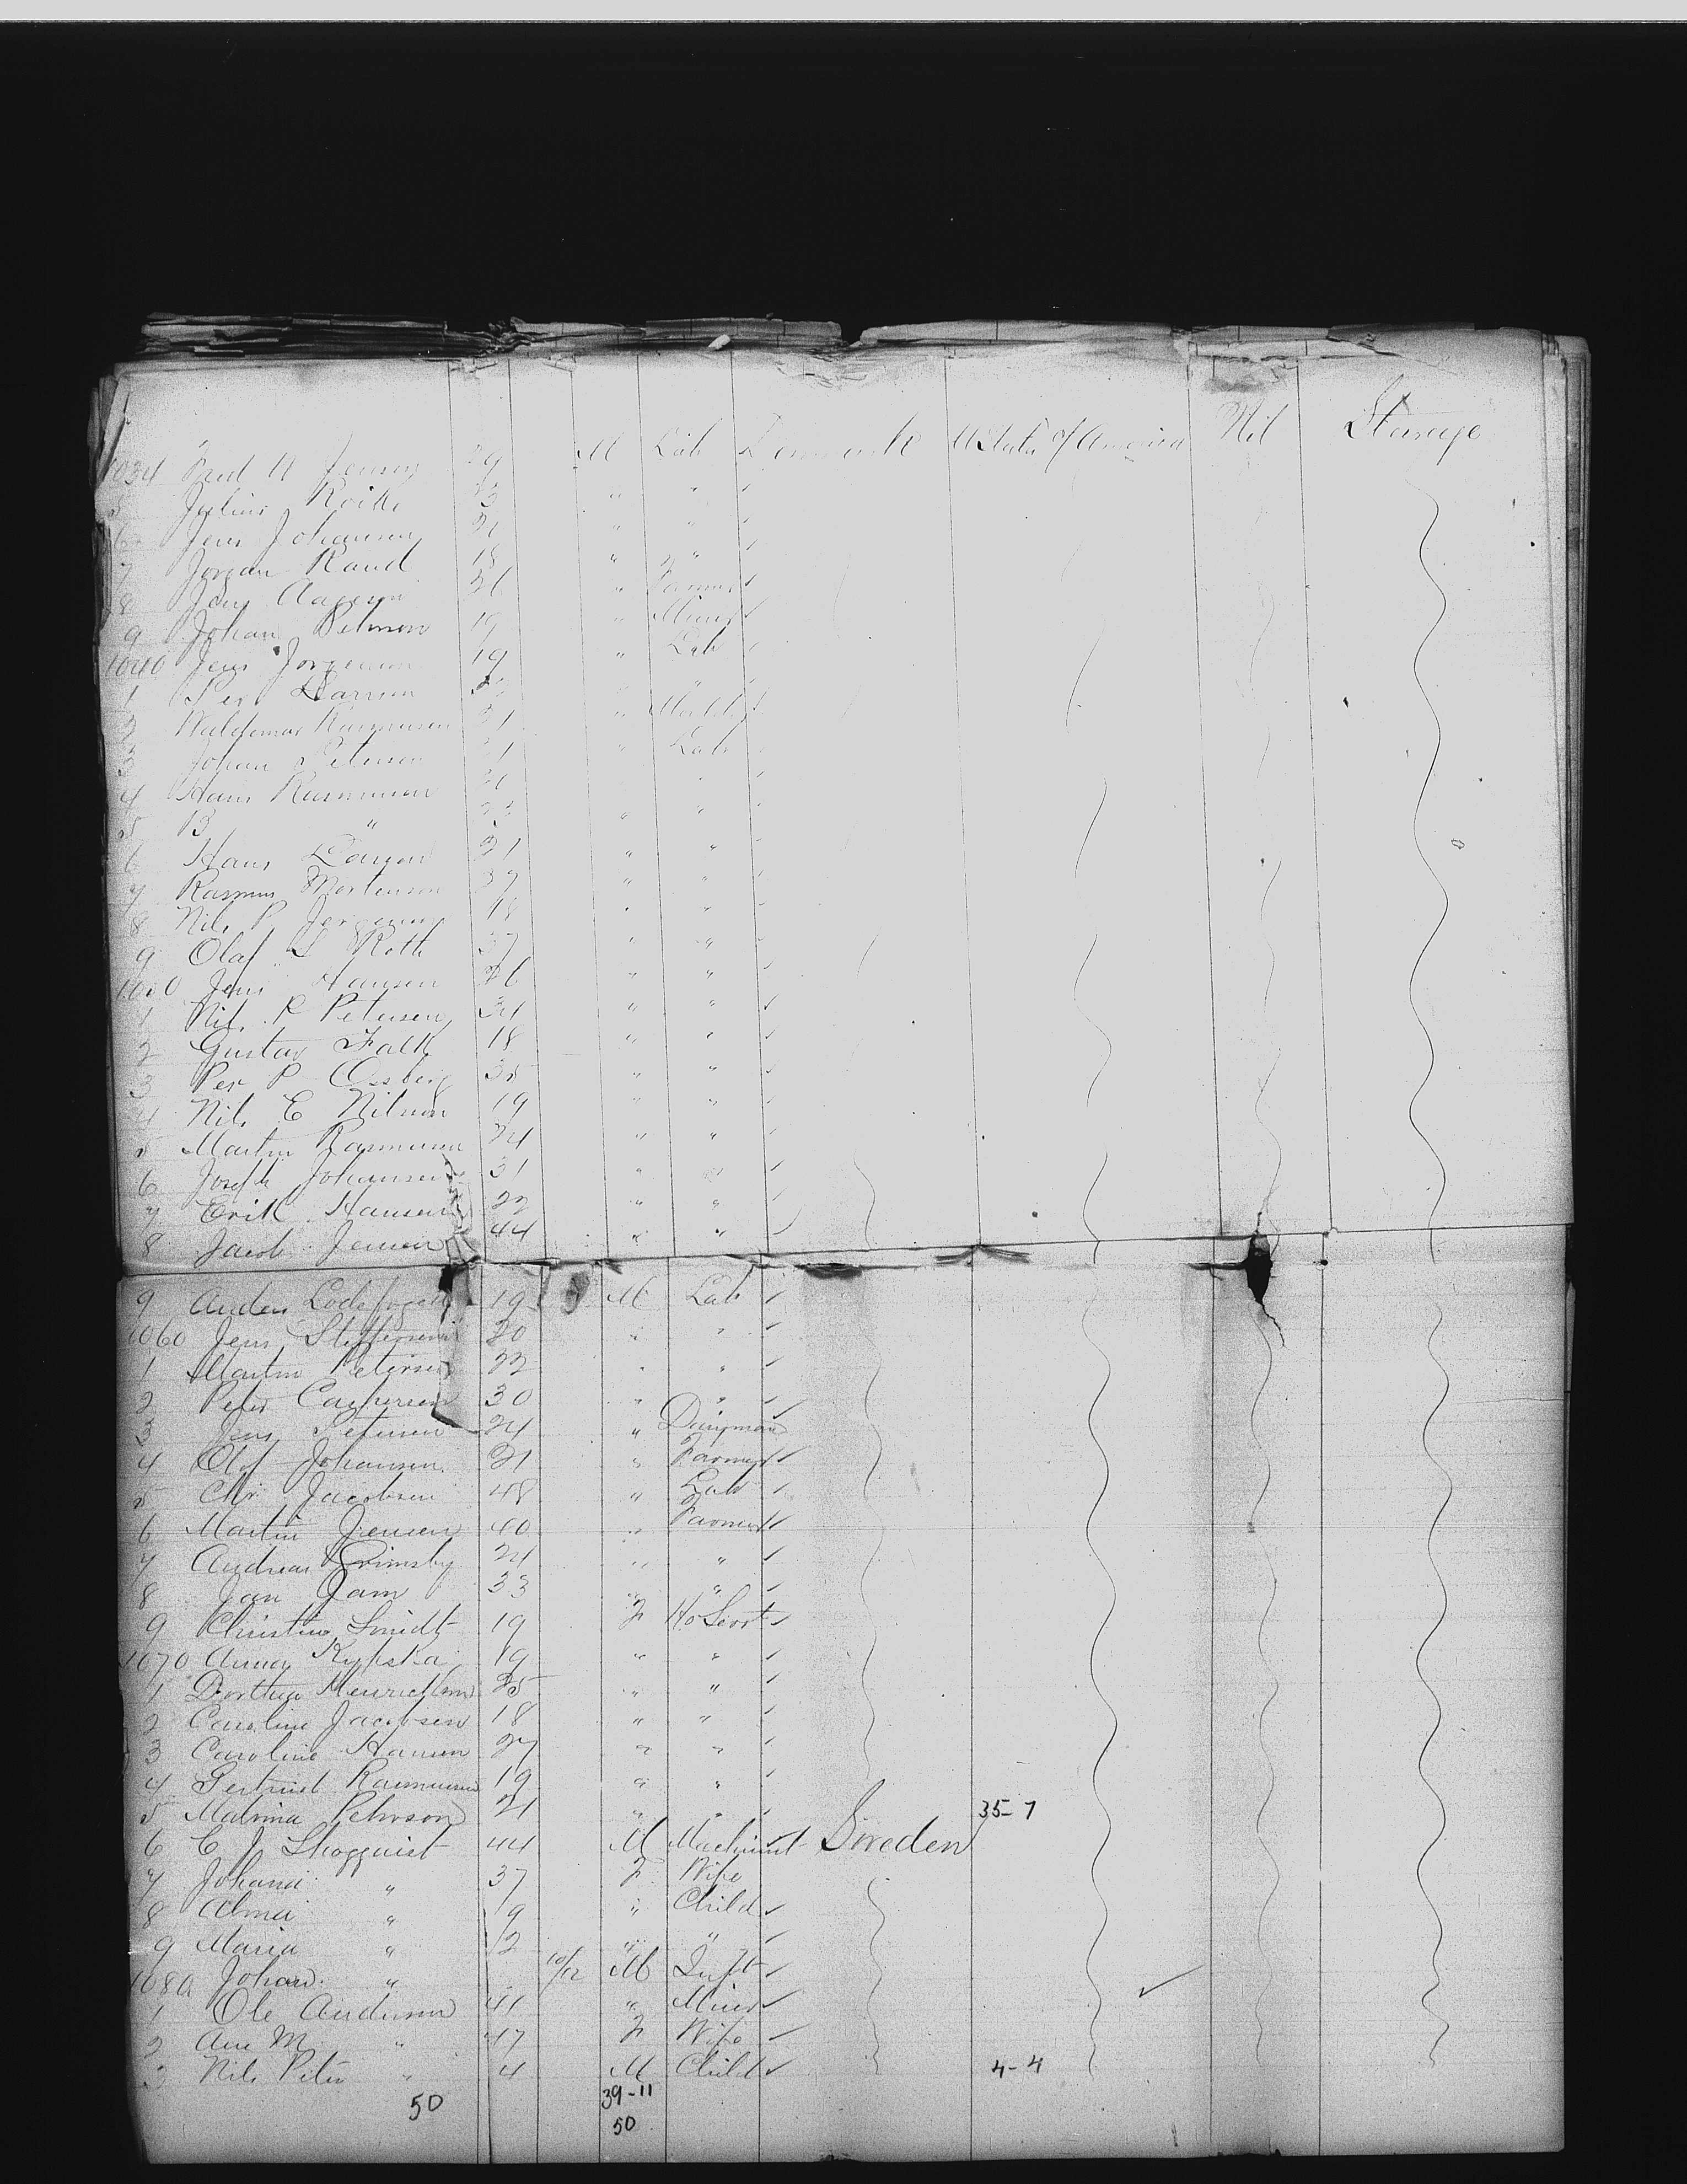 1034 Fred N Jensen 29 M Lab Denmark U States of America Nil Steerage
5 Julius 33 " "
6 Jens Johansen " "
7 Jorgan Raud 18 " "
8 Jens Aagesen 21 " Farmer
9 Johan Petersen 19 " Miner
1040 Jens Jorgensen 19 " Lab
1 Per Larsen " "
2 Waldemar Rasmussen 21 "
3 Johan Petersen 21 " Lab
4 Hans Rasmussen "
5 B " " "
6 Hans Larsen 21 " "
7 Rasmus Mortensen 37 " "
8 Nils P Jorgensen 18 " "
9 Olaf L Roth 37 " "
1050 Jens Hansen 26 " "
1 Nils P Petersen 34 " "
2 Gustav Falk 18 " "
3 Per P Ossberg 35 " "
4 Nils E Nilson 19 " "
5 Martin Rasmussen 24 " "
6 Joseph Johansen 31 " "
7 Erik Hansen 22 " "
8 Jacob Jensen 44 " "
9 Anders 19 M Lab
1060 Jens Steffensen 20 " "
1 Martin Petersen 22 " "
2 Peter Casperson 30 " "
3 Jens Petersen 24 " Dairyman
4 Olof Johansen 21 " Farmer
5 Chr Jacobsen 48 " Lab
6 Martin Jensen 40 " Farmer
7 Andreas Grimsby 24 " "
8 Jan Jam 33 " "
9 Christine Smidt 19 F Ho Servt
1070 Anna Kypska 19 " "
1 Dorthea Henricksen 25 " "
2 Caroline Jacobsen 18 " "
3 Caroline Hansen 27 " "
4 Gertrud Rasmussen 19 " "
5 Matrina Pehrson 21 " " 35-7
6 C J Skogquist 44 M Machinist Sweden
7 Johana " 37 F Wife
8 Alma " 9 " Child
9 Maria " 2 " "
1080 Johan " 10/12 M Inft
1 Ole Anderson 41 " Miner
2 Ane M " 47 F Wife
3 Nils Peter " 4 M Child 4-4
50 39-11
50